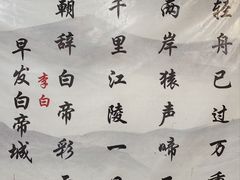 早发白帝城
李白
朝辞白帝彩
千里江陵一
两岸猿声啼
轻舟已过万重